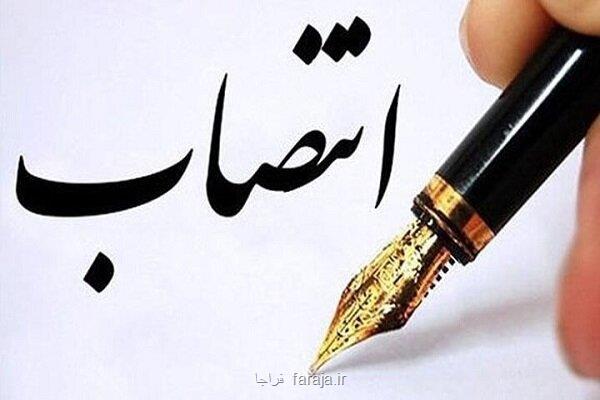 انتصاب
فراجا faraja.ir